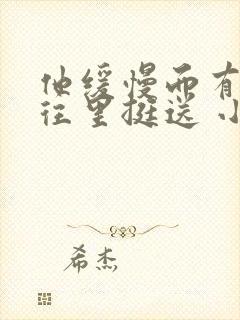 他缓慢而有
往里挺送 小
希杰